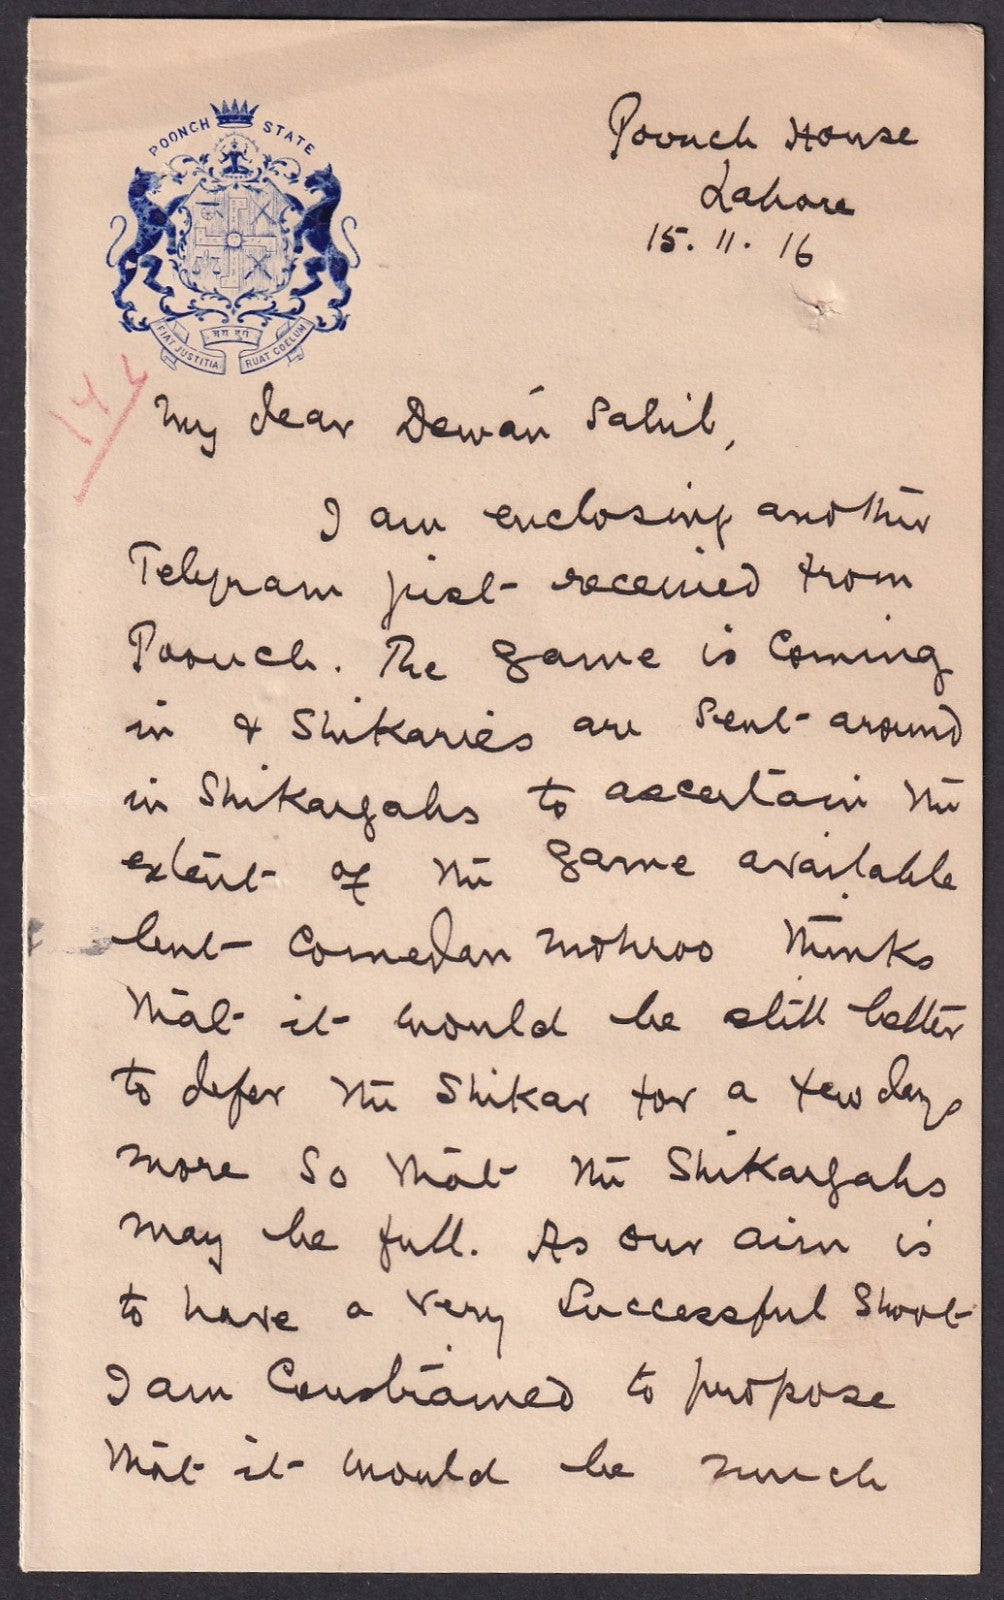 POONCH STATE
FIAT JUSTITIA
RUAT COELUM
Poonch House
Lahore
15. 11. 16
My dear Dewan Sahib,
I am enclosing another
Telegram just received from
Poonch. The game is Coming
in & Shikaries are Sent around
in Shikargahs to ascertain the
extent of the game available
but Comedan Mohroo thinks
that it would be still better
to defer the Shikar for a few days
more So that the Shikargahs
may be full. As our aim is
to have a very Successful Shoot
I am Constrained to propose
that it would be much